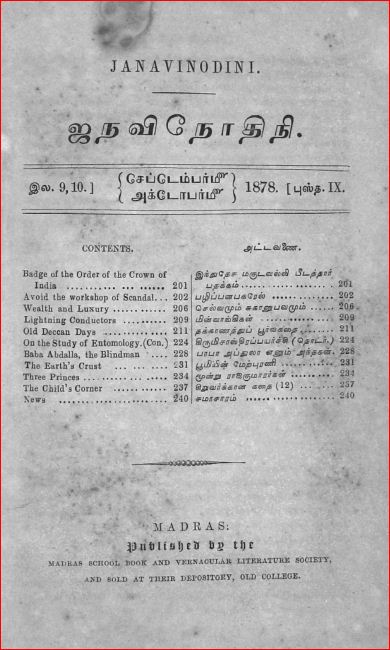 JANAVINODINI.
ஜநவிநோதிநி.
இல. 9, 10.] { செப்டெம்பர்மீ அக்டோபர்மீ } 1878. [புஸ்த. IX.
CONTENTS.
Badge of the Order of the Crown of
India ........... ... ...... 201
Avoid the workshop of Scandal... 202
Wealth and Luxury ............ 206
Lightning Conductors .......... 209
Old Deccan Days ............... 211
On the Study of Entomology.(Con.) 224
Baba Abdalla, the Blindman .... 228
The Earth's Crust ... ... .... 231
Three Princes ................ 234
The Child's Corner ............ 237
News ........................ 240
அட்டவணை.
இந்துதேச மகுடவல்லி பீடத்தார்
பதக்கம் ..................... 201
பழிப்பனபகரேல் ............... 202
செல்வமும் சுகானுபவமும் ...... 206
மின்வாங்கிகள் ................ 209
தக்காணத்துப் பூர்வகதை ........ 211
கிருமிசாஸ்திரப்பயர்ச்சி (தொடர்.) 224
பாபா அப்துலா எனும் அந்தகன். 228
பூமியின் மேற்புரணி ........... 231
மூன்று ராஜகுமாரர்கள் ......... 234
சிறுவர்க்கான கதை (12) ... ... 237
சமாசாரம் .................... 240
MADRAS:
Published by the
MADRAS SCHOOL BOOK AND VERNACULAR LITERATURE SOCIETY,
AND SOLD AT THEIR DEPOSITORY, OLD COLLEGE.